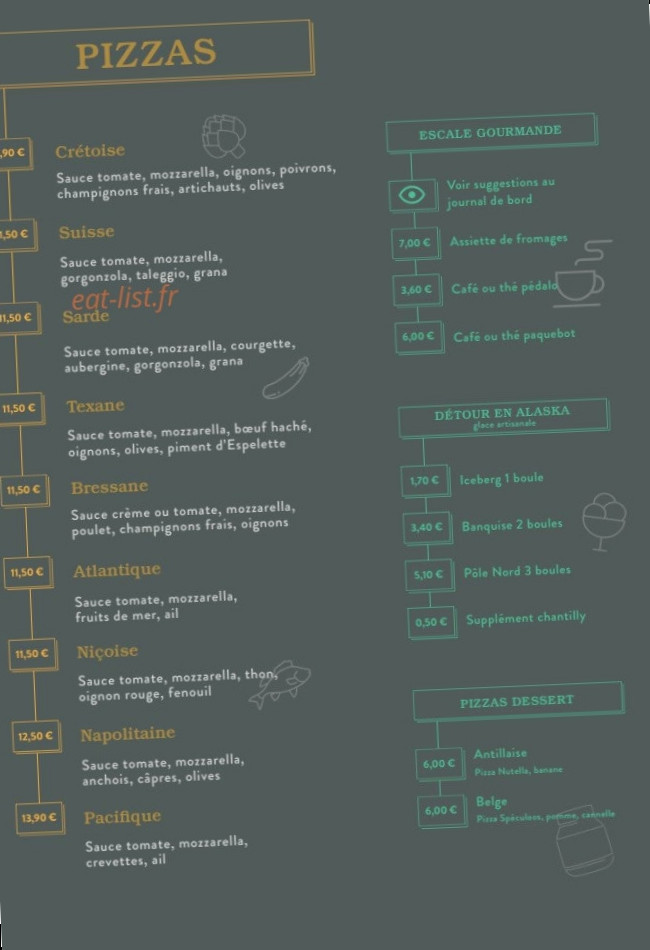 PIZZAS
Crétoise
Sauce tomate, mozzarella, oignons, poivrons,
champignons frais, artichauts, olives
Suisse
Sauce tomate, mozzarella,
gorgonzola, taleggio, grana
eat-list.fr
11,50 €
Sarde
Sauce tomate, mozzarella, courgette,
aubergine, gorgonzola, grana
11,50 €
Texane
Sauce tomate, mozzarella, bœuf haché,
oignons, olives, piment d'Espelette
11,50 €
Bressane
Sauce crème ou tomate, mozzarella,
poulet, champignons frais, oignons
11,50 €
Atlantique
Sauce tomate, mozzarella,
fruits de mer, ail
11,50 €
Niçoise
Sauce tomate, mozzarella, thon,
oignon rouge, fenouil
12,50 €
Napolitaine
Sauce tomate, mozzarella,
anchois, câpres, olives
13,90 €
Pacifique
Sauce tomate, mozzarella,
crevettes, ail
ESCALE GOURMANDE
Voir suggestions au
journal de bord
7,00 € Assiette de fromages
3,60 € Café ou thé pédalo
6,00 € Café ou thé paquebot
DÉTOUR EN ALASKA
glace artisanale
1,70 € Iceberg 1 boule
3,40 € Banquise 2 boules
5,10 € Pôle Nord 3 boules
0,50 € Supplément chantilly
PIZZAS DESSERT
6,00 € Antillaise
Pizza Nutella, banane
6,00 € Belge
Pizza Spéculoos, pomme, cannelle